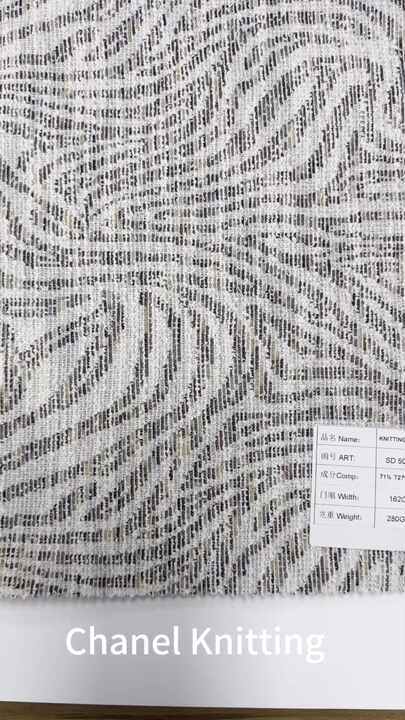 品名 Name: KNITTING
编号 ART: SD 50
成分Comp: 71% T27%
门幅 Width: 162C
克重 Weight: 280G
Chanel Knitting